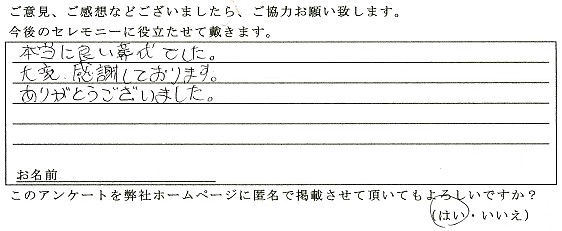 ご意見、ご感想などございましたら、ご協力お願い致します。
今後のセレモニーに役立たせて戴きます。
本当に良い葬式でした。
大変、感謝しております。
ありがとうございました。
お名前
このアンケートを弊社ホームページに匿名で掲載させて頂いてもよろしいですか？
(はい・いいえ)